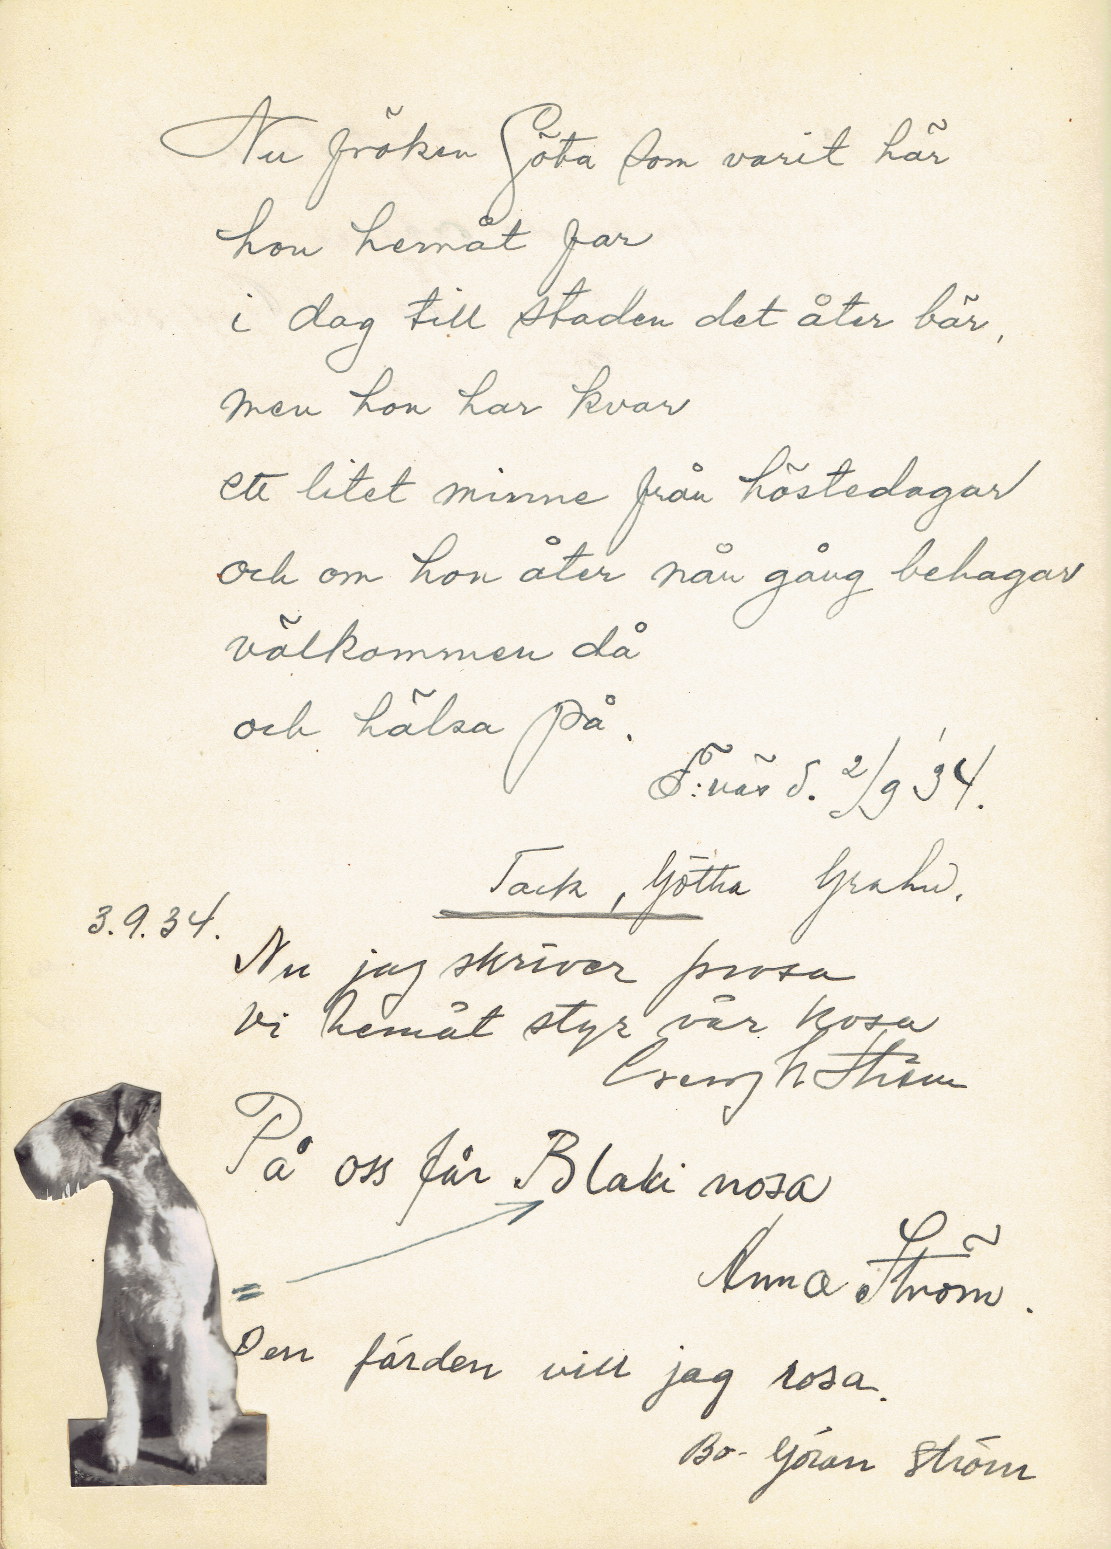 Nu fröken Göta som varit här
hon hemåt far
i dag till staden det åter bär,
men hon har kvar
ett litet minne från höstedagar
och om hon åter nån gång behagar
välkommen då
och hälsa på.
d. 2/9 '34.
Tack, Götha Grahn.
3.9.34.
Nu jag skriver prosa
Vi hemåt styr vår kosa
Ström
På oss får Blaki nosa
Anna Ström.
=
Den färden vill jag rosa.
Bo-Göran Ström